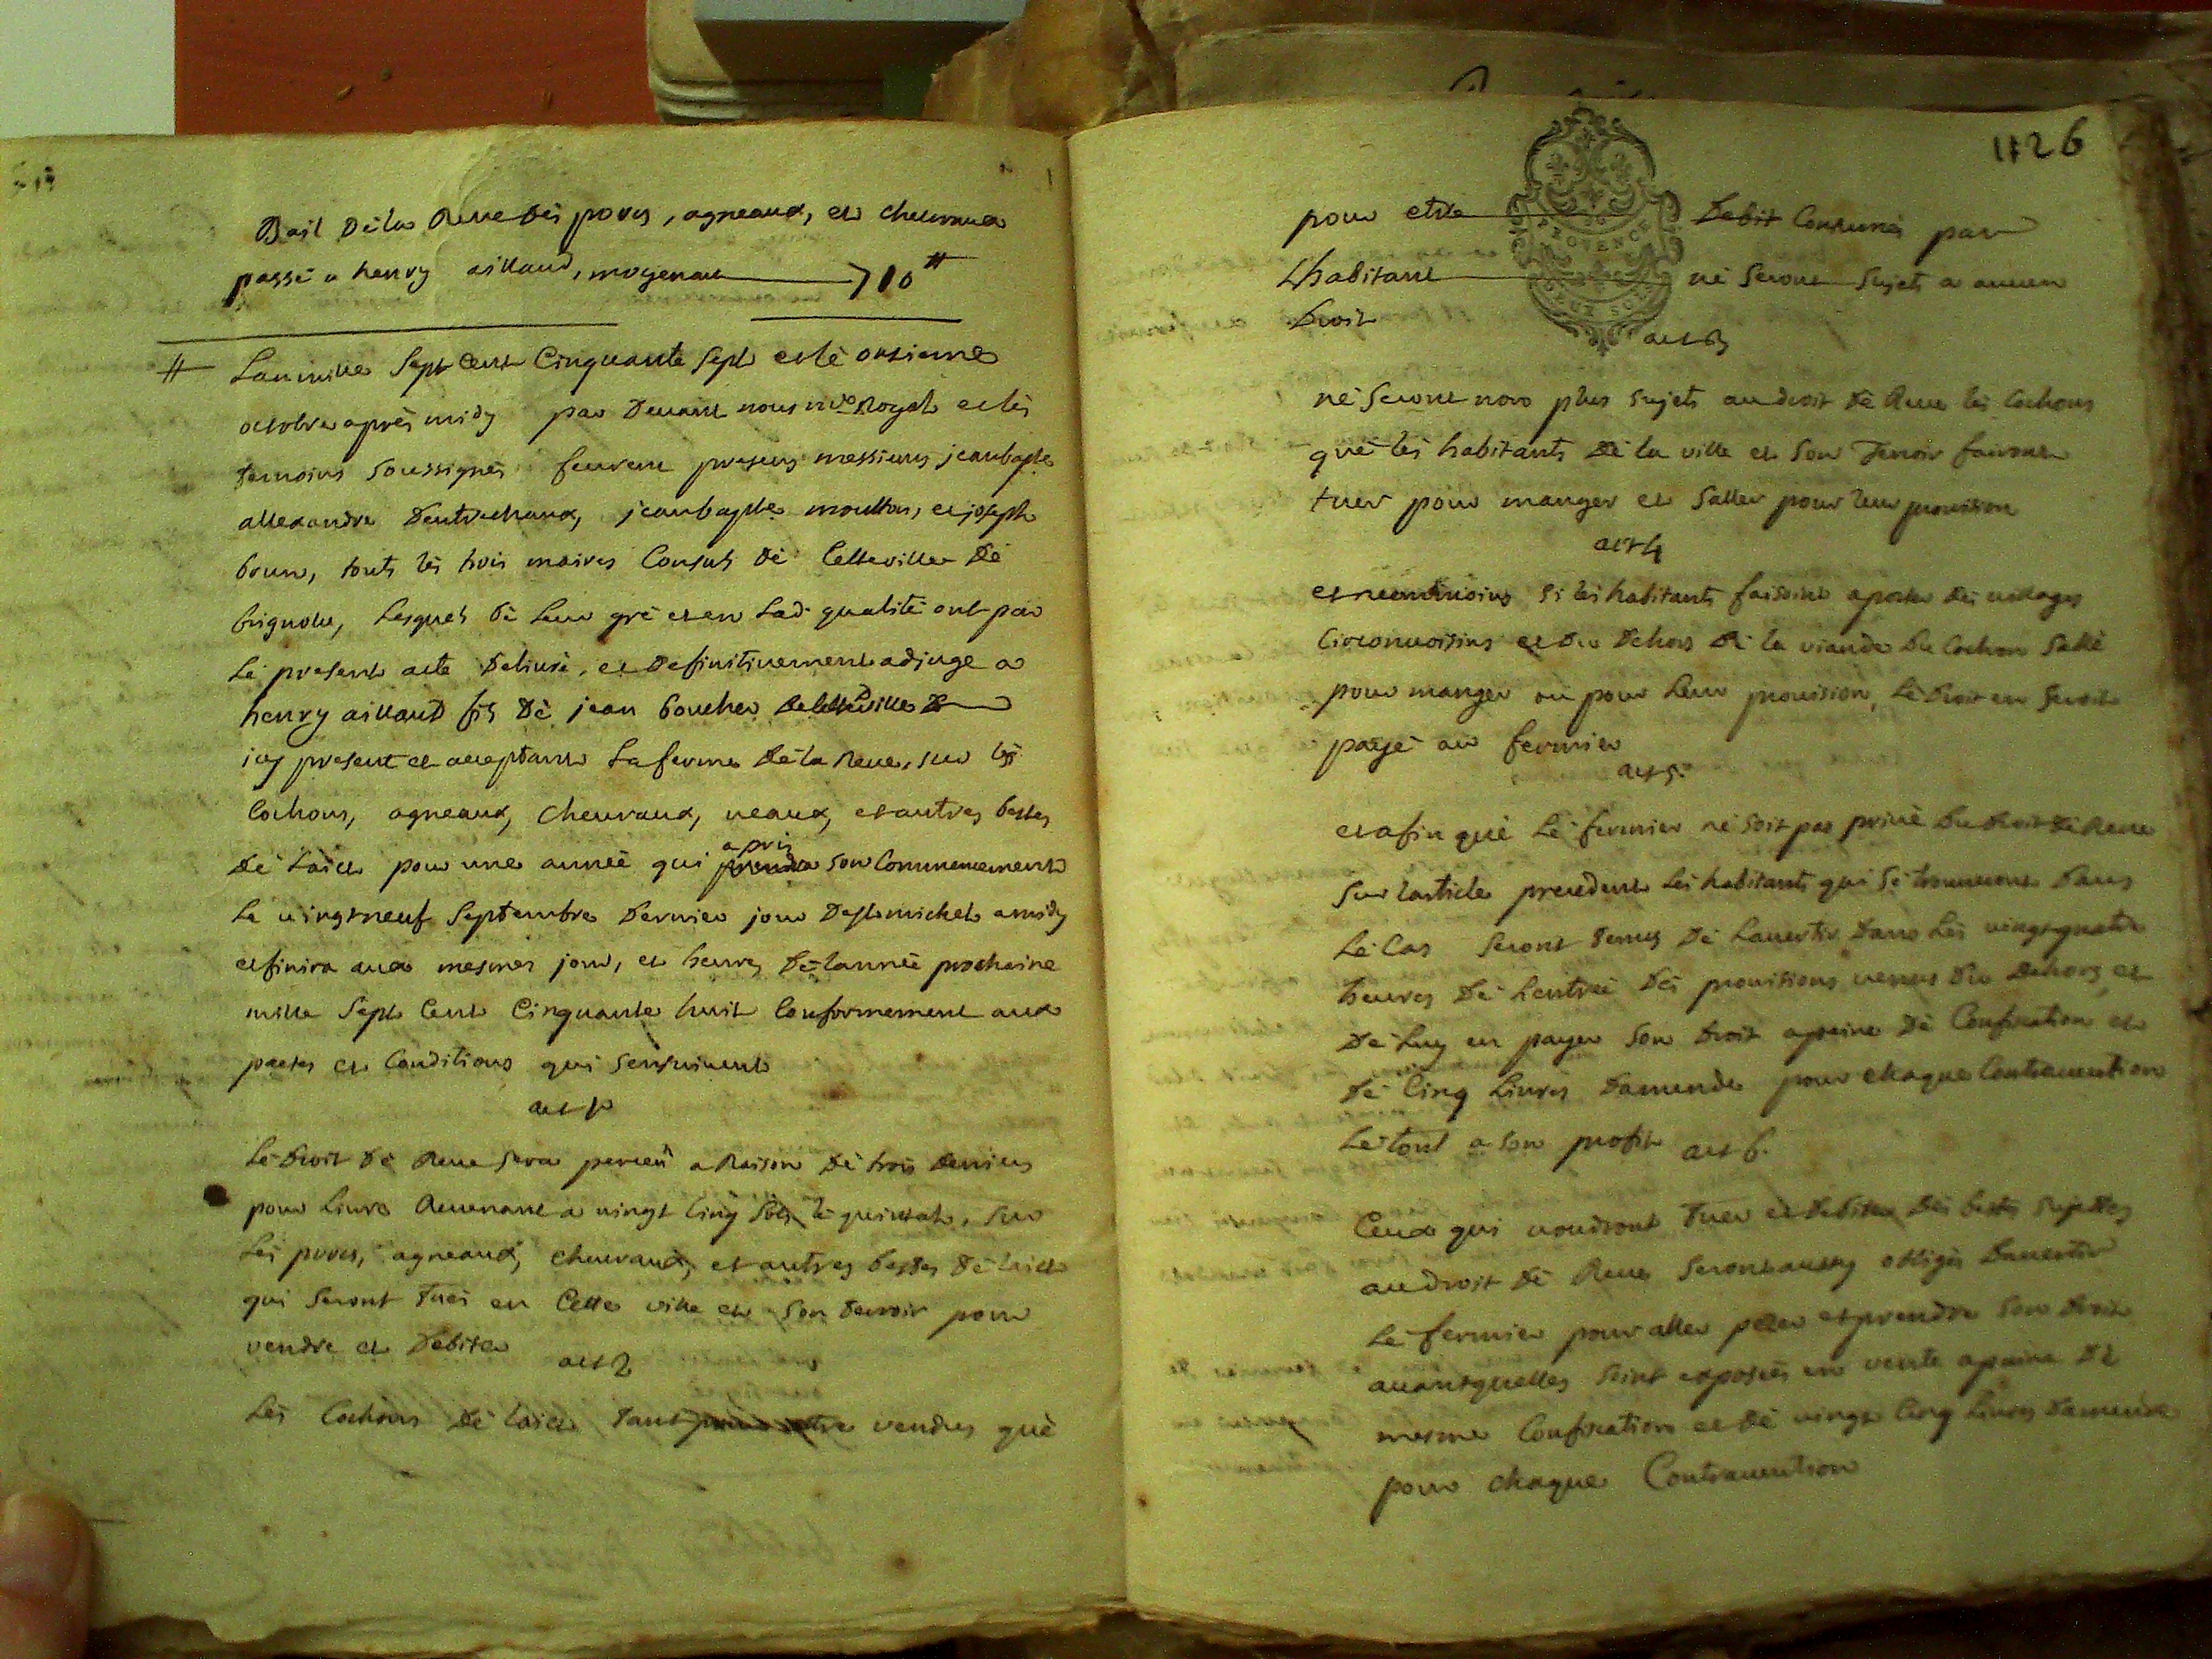 Bail de la Reve des porcs, agneaux, et cheuraux
passé a henry aillaud, moyenant 710 ₶
Lan mille Sept Cent Cinquante Sept et le onsieme
octobre après midy par Deuant nous nre Royal et les
temoins soussignés furent presens messieurs jeanbaptte
allexandre Dentrechaux, jeanbaptte moutton, et joseph
brun, touts les trois maires Consuls de Cette ville de
brignolle, Lesquels de Leur gré et en Lad. qualité ont par
Le present acte Deliuré, et Definitiuement adjugé a
henry aillaud fils de jean boucher de cette ville
icy present et acceptant La ferme de la Reve, sur les
Cochons, agneaux, cheuraux, ueaux, et autres bestes
de Laict pour une année qui a pris son Commencement
Le uingt neuf Septembre Dernier jour De St michel a midy
et finira aux mesmes jour, et heures de Lannée prochaine
mille Sept Cent Cinquante huit Conformement aux
pactes et Conditions qui sensuiuent
art 1r
Le Droit de Reve sera perceu a Raison de trois deniers
pour Liure Reuenant a uingt Cinq sols le quintal, sur
Les porcs, agneaux, cheuraux, et autres bestes de laict
qui Seront tués en Cette ville et son terroir pour
vendre et Debiter
art 2
Les Cochons de laict tant pour etre vendus què
1126
PROVENCE
DEUX SOLS
pour etre Debit Consumés par
Lhabitant ne Seront Sujets a aucun
Droit
art 3
ne Seront non plus sujets au droit de Reve les Cochons
què les habitants de la ville et son Terroir fairont
tuer pour manger et saller pour leur prouision
art 4
et neantmoins si les habitants faisoint aporter des uillages
Circonuoisins et du Dehors de la viande de Cochon sallé
pour manger ou pour Leur prouision, Le Droit en Seroit
payé au fermier
art 5
et afin què Le fermier ne soit pas priué du droit de Reve
sur larticle precedent Les habitants qui se trouueront Dans
Le Cas Seront tenus de Lauertir Dans Les uingt quatre
heures de Lentrée des prouisions uenues du Dehors et
de Luy en payer son droit a peine de Confiscation et
de Cinq Liures Damende pour chaque Contrauention
Le tout a son profit
art 6.
Ceux qui uoudront Tuer et debiter des bestes sujettes
au droit de Reve Seront aussy obligés Dauertir
Le fermier pour aller peser et prendre son droit
auant quelles soint exposées en vente a peine de
mesme Confiscation et de uingt Cinq Liures Damende
pour chaque Contrauention